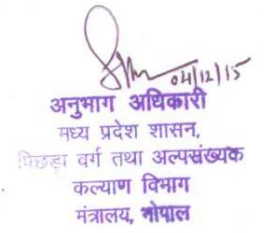 04/12/15
अनुभाग अधिकारी
मध्य प्रदेश शासन,
पिछड़ा वर्ग तथा अल्पसंख्यक
कल्याण विभाग
मंत्रालय, भोपाल